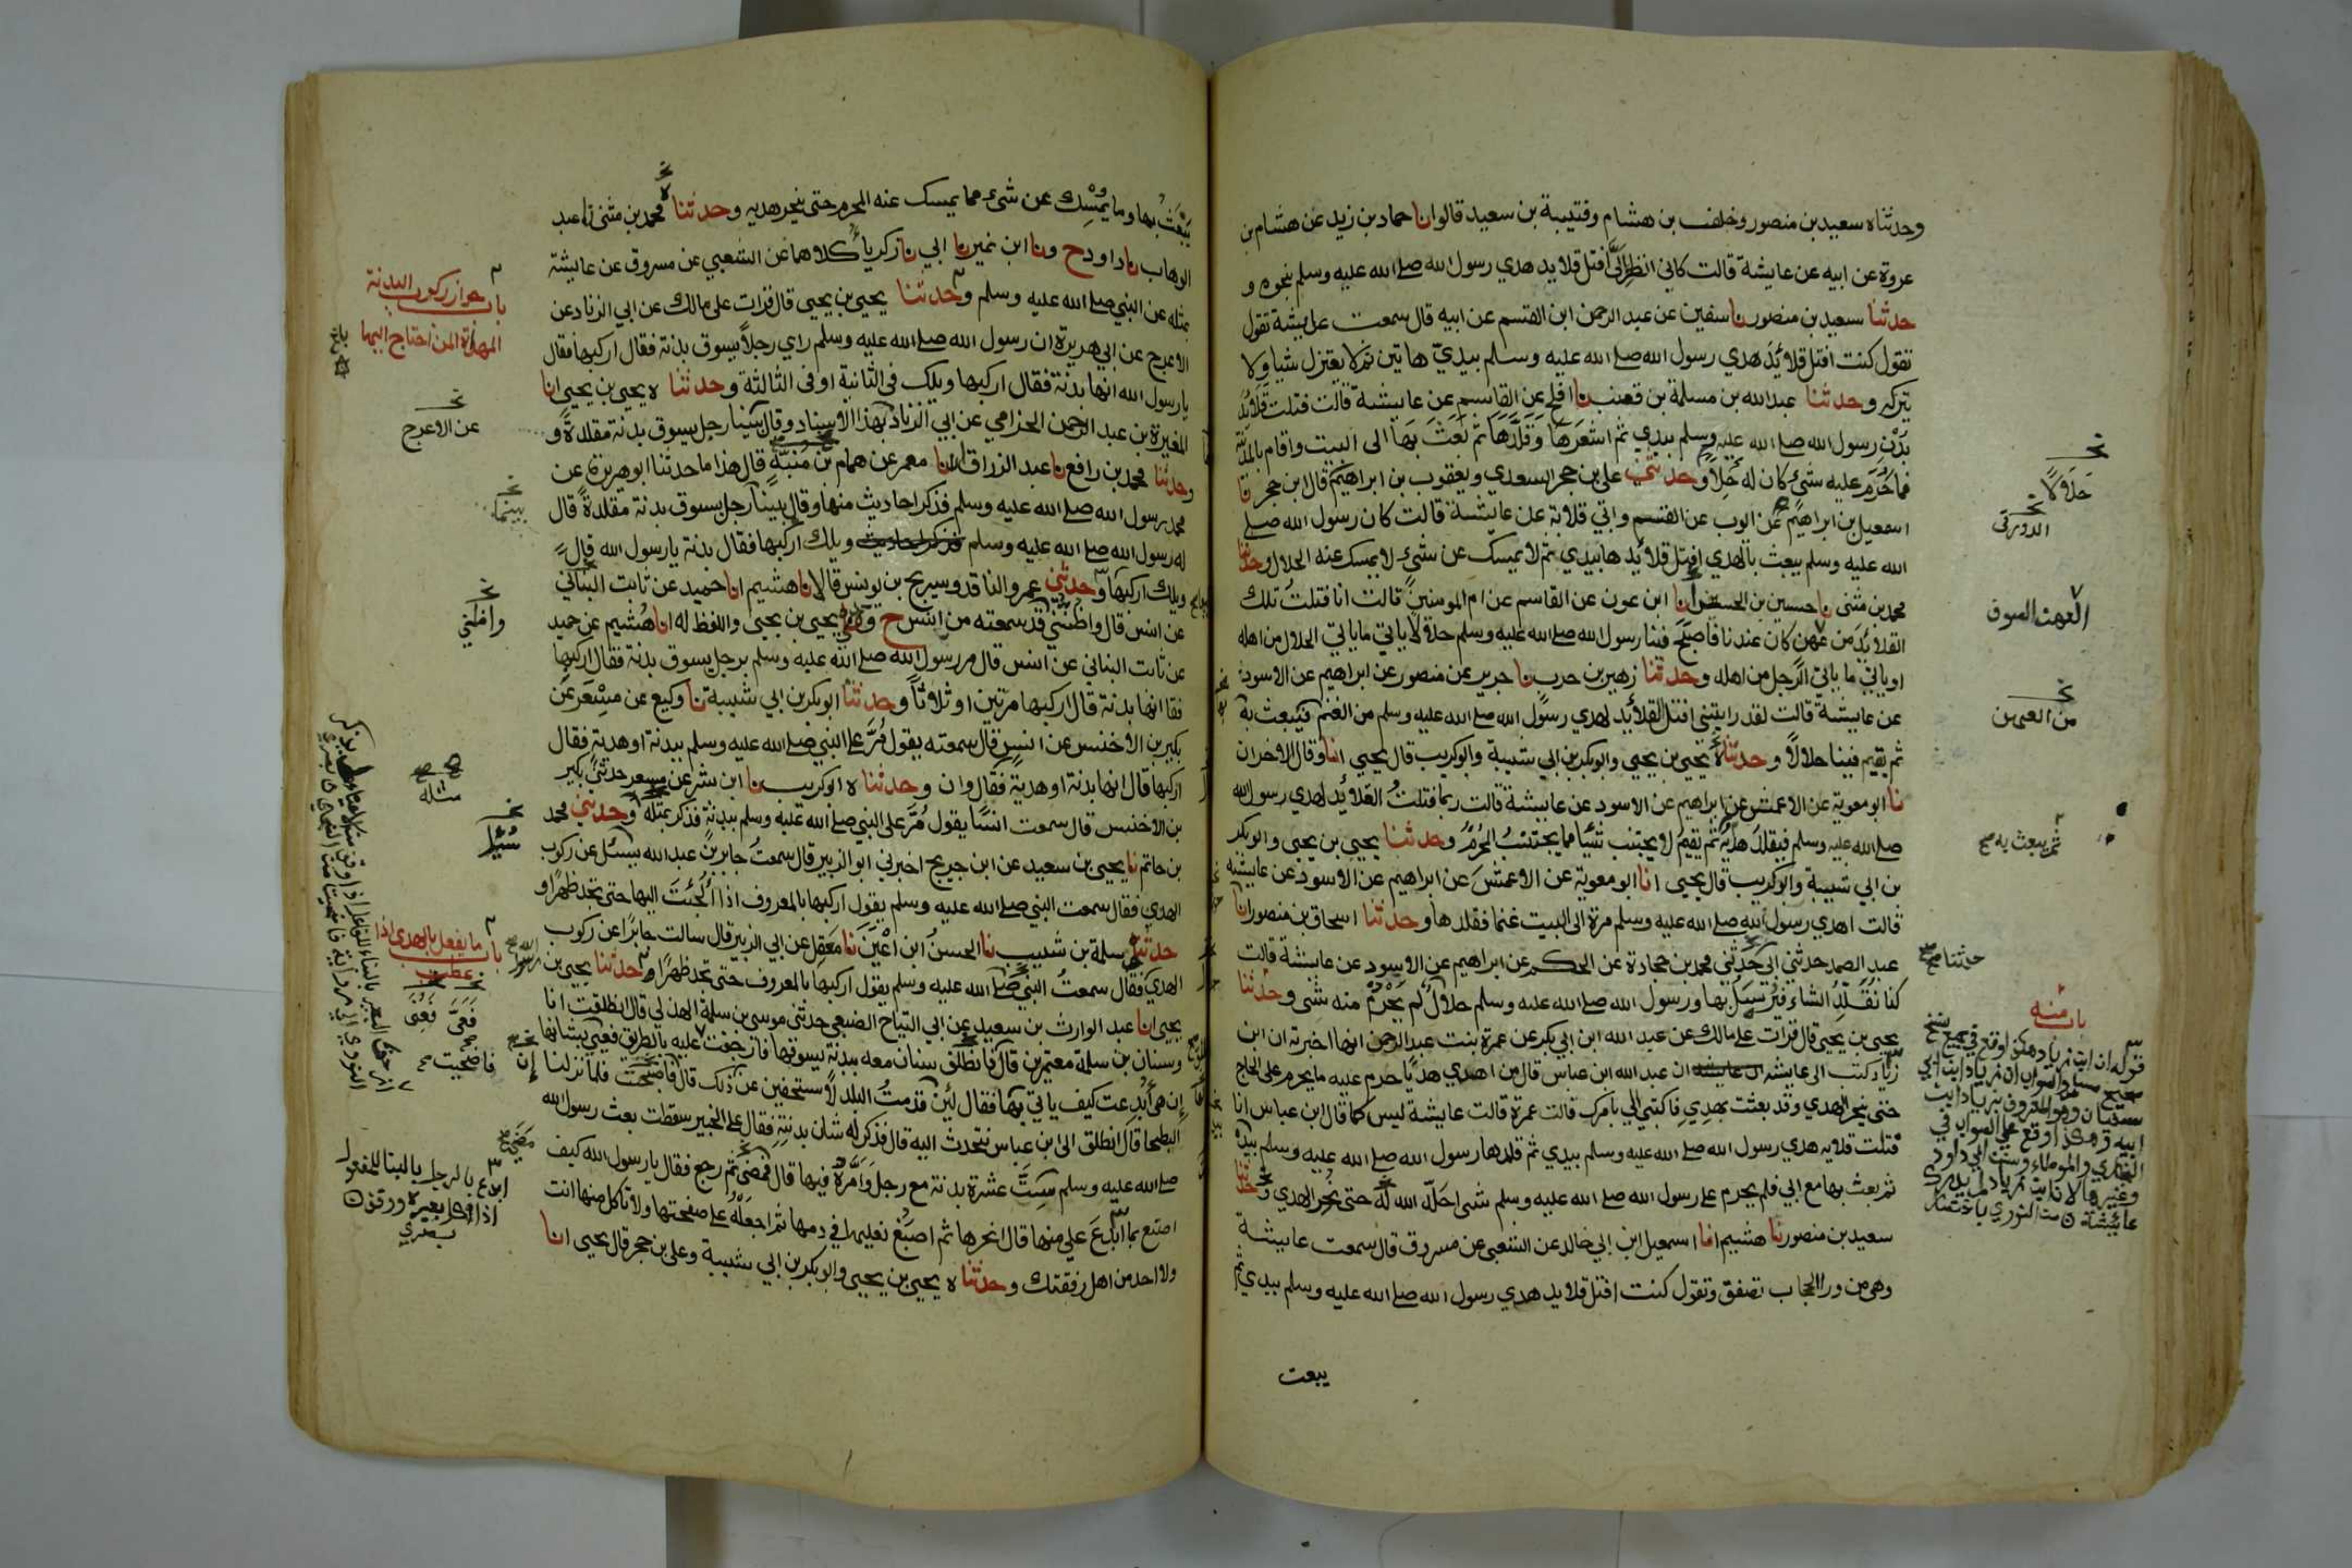 وحدثناه سعيد بن منصور وخلف بن هشام وقتيبة بن سعيد قالوا انا حماد بن زيد عن هشام بن
عروة عن ابيه عن عايشة قالت كاني انظر الَيَّ افتل قلايد هدي رسول الله صلے الله عليه وسلم بنحوه و
حدثنا سعيد بن منصور نا سفين عن عبد الرحمن ابن القسم عن ابيه قال سمعت عايشة تقول
تقول كنت افتل قلائد هدي رسول الله صلے الله عليه وسلم بيديّ هاتين ثم لا يعتزل شيا ولا
يتركه وحدثنا عبد الله بن مسلمة بن قعنب نا افلح عن القاسم عن عايشة قالت فتلت قلايد
بُدْن رسول الله صلے الله عليه وسلم بيدي ثم اشعرها وقلّدها ثم بعث بها الى البيت واقام بالمدينة
فما حرم عليه شئ كان له حِلا وحدثني علي بن حجر السعدي ويعقوب بن ابراهيم قال ابن حجر نا
اسمعيل بن ابراهيم عن ايوب عن القسم وابي قلابة عن عايشة قالت كان رسول الله صلے
الله عليه وسلم يبعث بالهدي افتل قلائدها بيدي ثم لا يمسك عن شئ لا يمسك عنه الحلال وحدثنا
محمد بن مثنى نا حسين بن الحسن نا ابن عون عن القاسم عن ام المومنين قالت انا فتلت تلك
القلائد من عهن كان عندنا فاصبح فينا رسول الله صلے الله عليه وسلم حلالا ياتي ما ياتي الحلال من اهله
او ياتي ما ياتي الرجل من اهله وحدثنا زهير بن حرب نا جرير عن منصور عن ابراهيم عن الاسود
عن عايشة قالت لقد رايتني افتل القلائد لهدي رسول الله صلے الله عليه وسلم من الغنم فيبعث به
ثم يقيم فينا حلالا وحدثنا يحيى بن يحيى وابوبكر بن ابي شيبة وابوكريب قال يحيى انا وقال الاخران
نا ابو معوية عن الاعمش عن ابراهيم عن الاسود عن عايشة قالت ربما فتلتُ القلائد لهدي رسول الله
صلے الله عليه وسلم فيقلد هديه ثم يقيم لا يجتنب شيا مما يجتنب المُحرِم وحدثنا يحيى بن يحيى وابوبكر
بن ابي شيبة وابوكريب قال يحيى انا ابو معوية عن الاعمش عن ابراهيم عن الاسود عن عايشة
قالت اهدي رسول الله صلے الله عليه وسلم مرة الى البيت غنما فقلدها وحدثنا اسحاق بن منصور انا
عبد الصمد حدثني ابي حدثني محمد بن جحادة عن الحكم عن ابراهيم عن الاسود عن عايشة قالت
كنا نُقَلِّدُ الشاء فيُرسِل بها ورسول الله صلے الله عليه وسلم حلال لم يَحْرُمْ منه شى وحدثنا
يحيى بن يحيى قال قرات على مالك عن عبد الله ابن ابي بكر عن عمرة بنت عبد الرحمن انها اخبرته ان ابن
زياد كتب الى عايشة ان عبد الله ابن عباس قال من اهدي هديا حرم عليه ما يحرم على الحاج
حتى ينحر الهدي وقد بعثت بهدي فاكتبي الي بامرك قالت عمرة قالت عايشة ليس كما قال ابن عباس انا
فتلت قلايد هدي رسول الله صلے الله عليه وسلم بيدي ثم قلدها رسول الله صلے الله عليه وسلم بيده
ثم بعث بها مع ابي فلم يحرم على رسول الله صلے الله عليه وسلم شى احله الله له حتى نُحِر الهدي وحدثنا
سعيد بن منصور نا هشيم انا اسمعيل ابن ابي خالد عن الشعبي عن مسروق قال سمعت عايشة
وهي من ورا الحجاب تصفق وتقول كنت افتل قلايد هدي رسول الله صلے الله عليه وسلم بيدي ثم
يبعث
حلالًا
الدورقي
العهن الصوف
من العهن
ثم يبعث به صح
حدثنا صح
باب منه
قوله ان ابن زياد هكذا وقع في جميع نسخ
يَبْعَثُ بها وما يمْسِك عن شئ مما يمسك عنه المحرم حتى ينحر هديه وحدثنا محمد بن مثنى نا عبد
الوهاب نا داود ح ونا ابن نمير نا ابي نا زكرياء كلاهما عن الشعبي عن مسروق عن عايشة
بمثله عن النبي صلے الله عليه وسلم وحدثنا يحيى بن يحيى قال قرات على مالك عن ابي الزناد عن
الاعرج عن ابي هريرة ان رسول الله صلے الله عليه وسلم راي رجلاً يسوق بدنة فقال اركبها فقال
يا رسول الله انها بدنة فقال اركبها ويلك في الثانية او في الثالثة وحدثنا ه يحيى بن يحيى انا
المغيرة بن عبد الرحمن الحزامي عن ابي الزناد بهذا الاسناد وقال بينا رجل يسوق بدنة مقلدة و
وحدثنا محمد بن رافع نا عبد الرزاق نا معمر عن همام بن منبّه قال هذا ما حدثنا ابو هريرة عن
محمد رسول الله صلے الله عليه وسلم فذكر احاديث منها وقال بينا رجل يسوق بدنة مقلدةً قال
له رسول الله صلے الله عليه وسلم ويلك اركبها فقال بدنة يا رسول الله قال
ويلك اركبها وحدثني عمرو الناقد وسريج بن يونس قالا نا هشيم انا حميد عن ثابت البناني
عن انس قال واظنني قد سمعته من انس ح وحدثني يحيى بن يحيى واللفظ له انا هُشيم عن حميد
عن ثابت البناني عن انس قال مر رسول الله صلے الله عليه وسلم برجل يسوق بدنة فقال اركبها
فقا انها بدنة قال اركبها مرتين او ثلاثاً وحدثنا ابوبكر بن ابي شيبة نا وكيع عن مِسْعَر عن
بكير بن الاخنس عن انس قال سمعته يقول مُرَّ على النبي صلے الله عليه وسلم ببدنة او هدية فقال
اركبها قال انها بدنة او هدية فقال وان وحدثنا ه ابوكريب نا ابن بشر عن مسعر حدثني بكير
بن الاخنس قال سمعت انسًا يقول مُرَّ على النبي صلے الله عليه وسلم ببدنة فذكر بمثله وحدثني محمد
بن حاتم نا يحيى بن سعيد عن ابن جريج اخبرني ابو الزبير قال سمعتُ جابر بن عبد الله يسئل عن ركوب
الهدي فقال سمعت النبي صلے الله عليه وسلم يقول اركبها بالمعروف اذا اُلْجِئتَ اليها حتى تجد ظهرًا و
حدثني سلمة بن شبيب نا الحسنُ ابن اعْيَنَ نا مَعقِل عن ابي الزبير قال سالت جابرًا عن ركوب
الهدي فقال سمعتُ النبي صلے الله عليه وسلم يقول اركبها بالمعروف حتى تجد ظهرًا وحدثنا يحيى بن
يحيى انا عبد الوارث بن سعيد عن ابي التياح الضبعي حدثني موسى بن سلمة الهذلي قال انطلقت انا
وسنان بن سلمة معتمرين قال فانطلق سنان معه ببدنة يسوقها فازحفت عليه بالطريق فعيي بشانها
إن هي اُبدعت كيف ياتي بها فقال لئن قدمتُ البلد لاستحفين عن ذلك قال فاضحيت فلما نزلنا
البطحا قال انطلق الى ابن عباس نتحدث اليه قال فذكر له شان بدنته فقال على الخبير سقطت بعث رسول الله
صلے الله عليه وسلم بِستَّ عشرة بدنة مع رجل وَامَّرَهُ فيها قال فمضى ثم رجع فقال يا رسول الله كيف
اصنع بما اُبدِعَ علي منها قال انحرها ثم اصبُغ نعليها في دمها ثم اجعلْهُ على صفحتها ولا تاكل منها انت
ولا احد من اهل رفقتك وحدثنا ه يحيى بن يحيى وابوبكر بن ابي شيبة وعلي بن حجر قال يحيى انا
باب جواز ركوب البدنة
المهداة لمن احتاج اليها
عن الاعرج
بينما
واظني
مثله
باب ما يفعل بالهدي اذا
عطب
فاضحيت
ابدع بالرجل بالبنا للمفعول